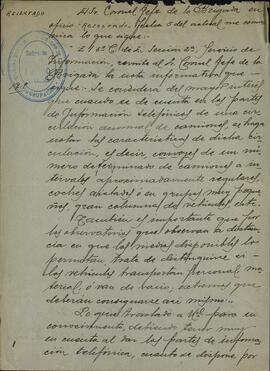 RESERVADO
El Sr. Coronel Jefe de la Brigada en
oficio Reservado, fecha 5 del actual me comu-
nica lo que sigue:
"El E. de E. Sección 2ª, Servicio de
Información, remite al Sr. Coronel Jefe de la
Brigada la nota informativa que
sigue: Se considera del mayor interés
que cuando se dé cuenta en los partes
de Información telefónicos de una cir-
culación anormal de camiones se haga
notar las características de dicha cir-
culación, es decir convoyes de un nú-
mero determinado de camiones a in-
tervalos aproximadamente regulares,
coches aislados o en grupos muy peque-
ños, gran columna de vehículos etc.
También es importante que por
los observatorios que observan la distancia
en que los medios disponibles lo
permitan, trate de distinguirse si
los vehículos transportan personal, ma-
terial, o van de vacío; extremos que
deberán consignarse así mismo."
Lo que traslado a Vd. para su
conocimiento, debiendo tener muy
en cuenta al dar los partes de informa-
ción telefónica, cuanto se dispone por